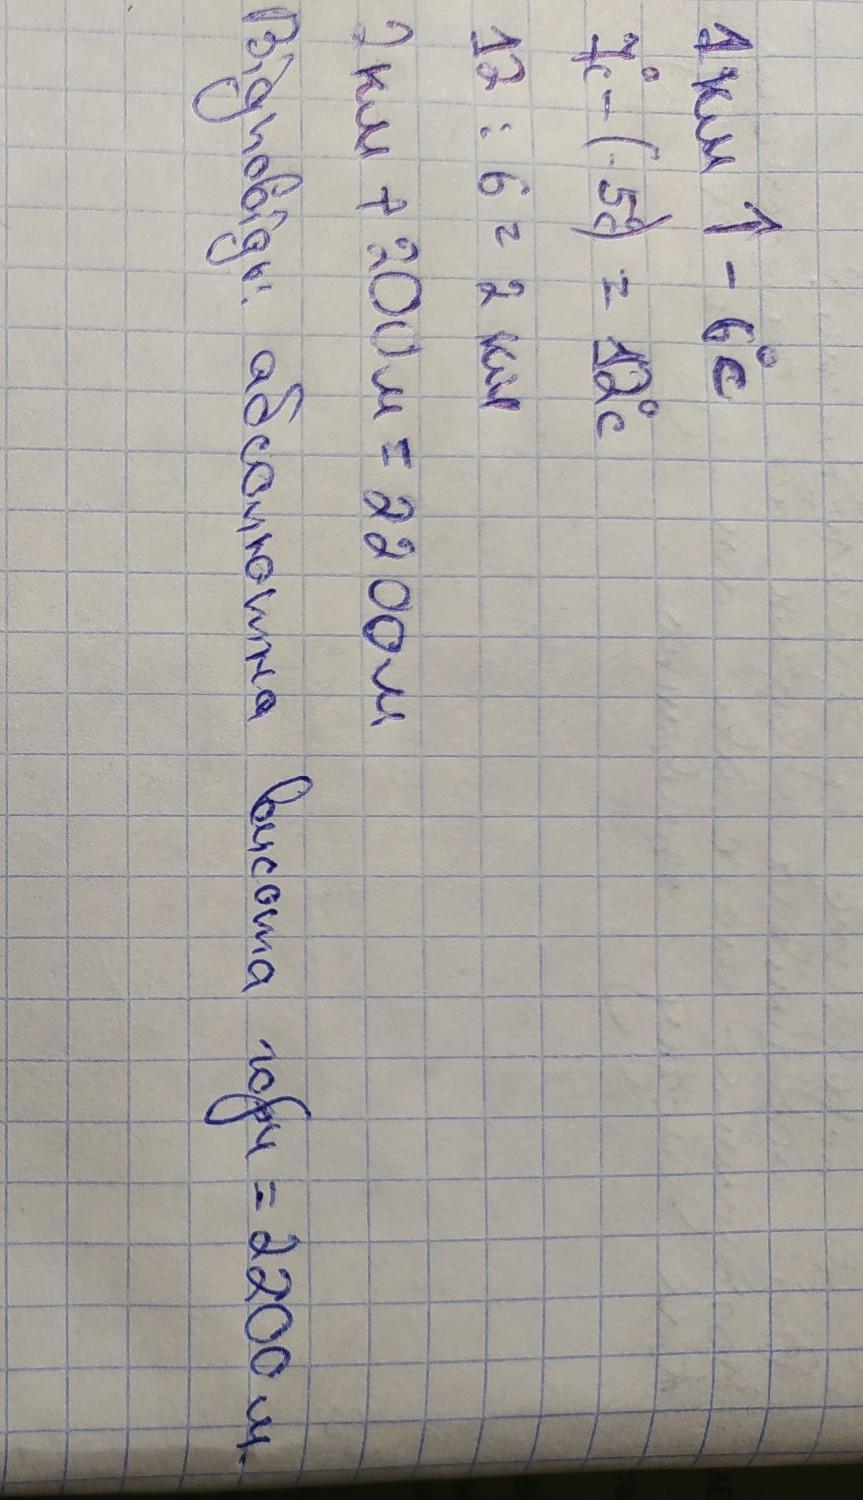 1 км ↑ - 6°с
7°с - (-5°) = 12°с
12 : 6 = 2 км
2 км + 200 м = 2200 м
Відповідь: абсолютна висота гори = 2200 м.